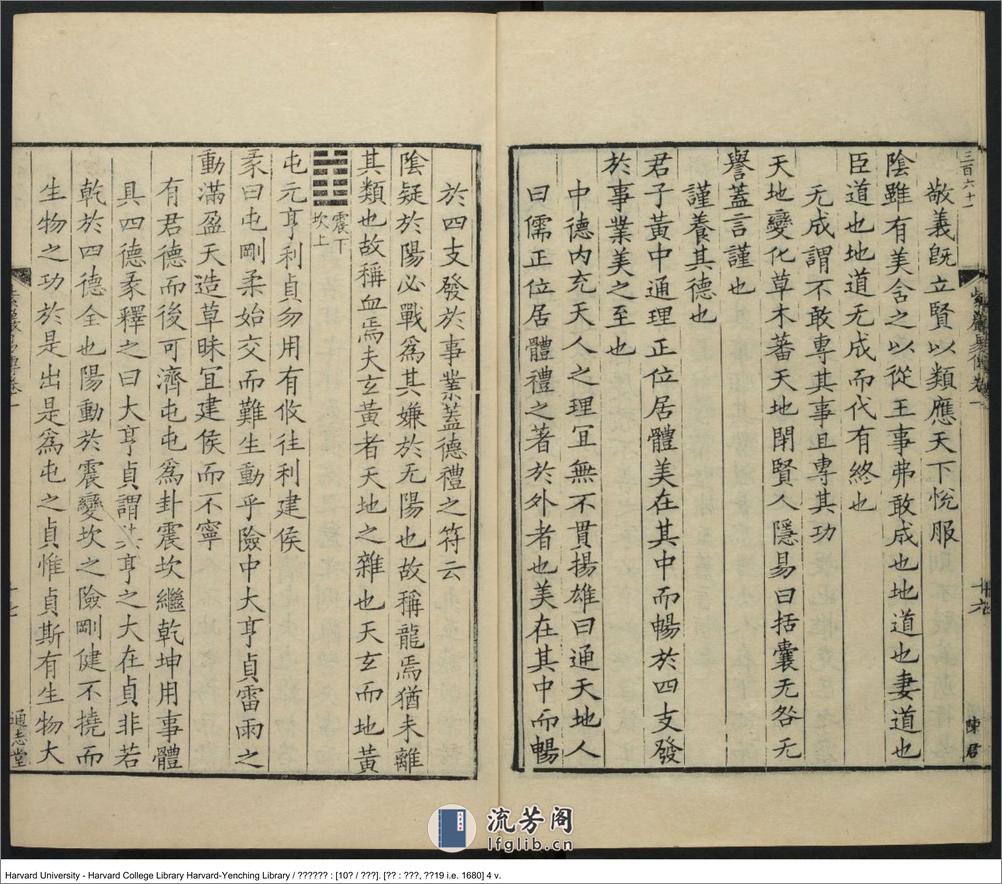 三百六十一
敬義既立賢以類應天下悅服
陰雖有美含之以從王事弗敢成也地道也妻道也
臣道也地道无成而代有終也
无成謂不敢專其事且專其功
天地變化草木蕃天地閉賢人隱易曰括囊无咎无
譽蓋言謹也
謹養其德也
君子黃中通理正位居體美在其中而暢於四支發
於事業美之至也
中德內充天人之理冝無不貫揚雄曰通天地人
曰儒正位居體禮之著於外者也美在其中而暢
陳君
於四支發於事業蓋德禮之符云
陰疑於陽必戰爲其嫌於无陽也故稱龍焉猶未離
其類也故稱血焉夫玄黃者天地之雜也天玄而地黃
震下
坎上
屯元亨利貞勿用有攸往利建侯
彖曰屯剛柔始交而難生動乎險中大亨貞雷雨之
動滿盈天造草昧冝建侯而不寧
有君德而後可濟屯屯爲卦震坎繼乾坤用事體
具四德彖釋之曰大亨貞謂其亨之大在貞非若
乾於四德全也陽動於震變坎之險剛健不撓而
生物之功於是出是爲屯之貞惟貞斯有生物大
通志堂
流芳阁
lfglib.cn
Harvard University - Harvard College Library Harvard-Yenching Library / ?????? : [10? / ???]. [?? : ???, ??19 i.e. 1680] 4 v.